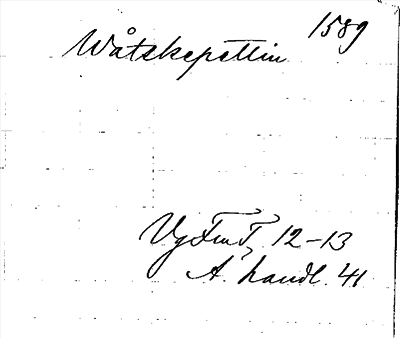 Wåtskepettin 1589
VgFmT, 12-13
A. handl. 41